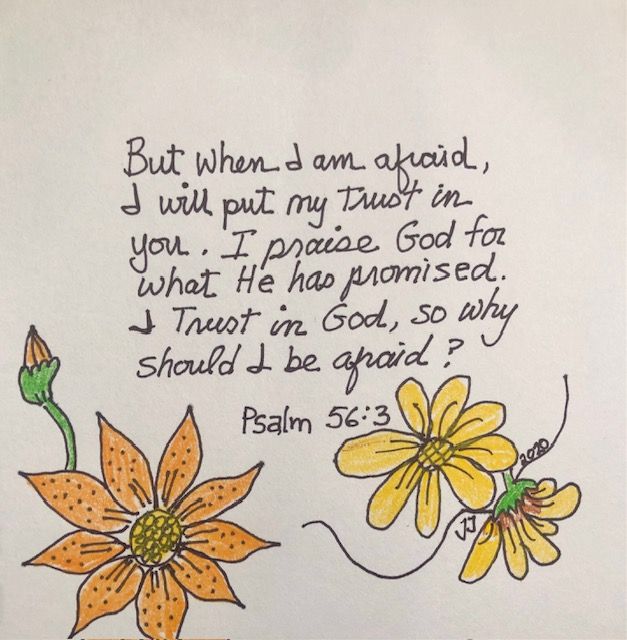 But when I am afraid,
I will put my Trust in
you. I praise God for
what He has promised.
I Trust in God, so why
should I be afraid?
Psalm 56:3
2020
JJ